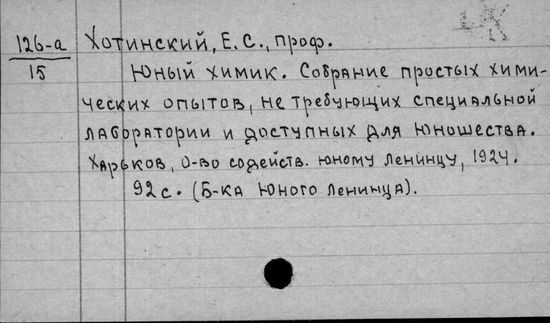 126-а
15
Хотинский, Е.С., проф.
Юный химик. Собрание простых хими-
ческих опытов, не требующих специальной
лаборатории и доступных для юношества.
Харьков, о-во содейств. юному ленинцу, 1924.
92 с. (Б-ка Юного Ленинца).